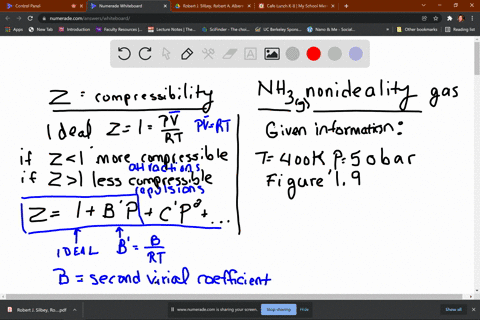 Control Panel
Numerade Whiteboard
Robert J. Silbey, Robert A. Albert
Cafe Lunch K-8 | My School Men
numerade.com/answers/whiteboard/
Apps
Dashboard
Faculty Resources
Lecture Notes | The
SciFinder - The choi
UC Berkeley Spons
NCBI
Imported From IE
Other bookmarks
Z = compressibility
Ideal Z = 1 = PV̅/RT PV̅=RT
if Z<1 more compressible
attractions
if Z>1 less compressible
repulsions
Z = 1 + B'P + C'P² + ...
IDEAL B' = B/RT
B = second virial coefficient
NH₃(g) nonideality gas
Given information:
T=400K P=50bar
Figure 1.9
Robert J. Silbey, Ro....pdf
www.numerade.com is sharing your screen.
Stop sharing
Hide
Show all